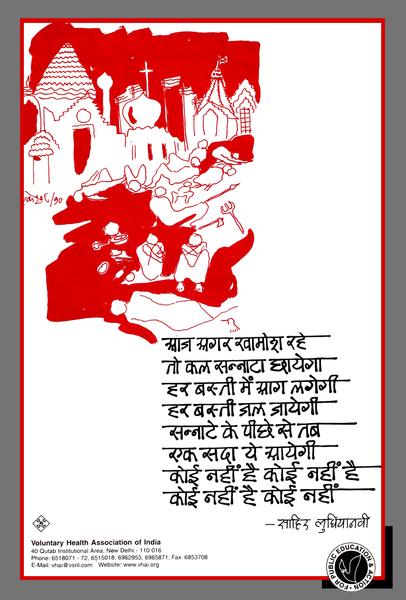 आज अगर खामोश रहे
तो कल सन्नाटा छायेगा
हर बस्ती में आग लगेगी
हर बस्ती जल जायेगी
सन्नाटे के पीछे से तब
एक सदा ये आयेगी
कोई नहीं है कोई नहीं है
कोई नहीं है कोई नहीं
– साहिर लुधियानवी
Voluntary Health Association of India
40 Qutab Institutional Area, New Delhi - 110 016
Phone: 6518071 - 72, 6515018, 6962953, 6965871; Fax: 6853708
E-Mail: vhai@vsnl.com Website: www.vhai.org
FOR PUBLIC EDUCATION & ACTION